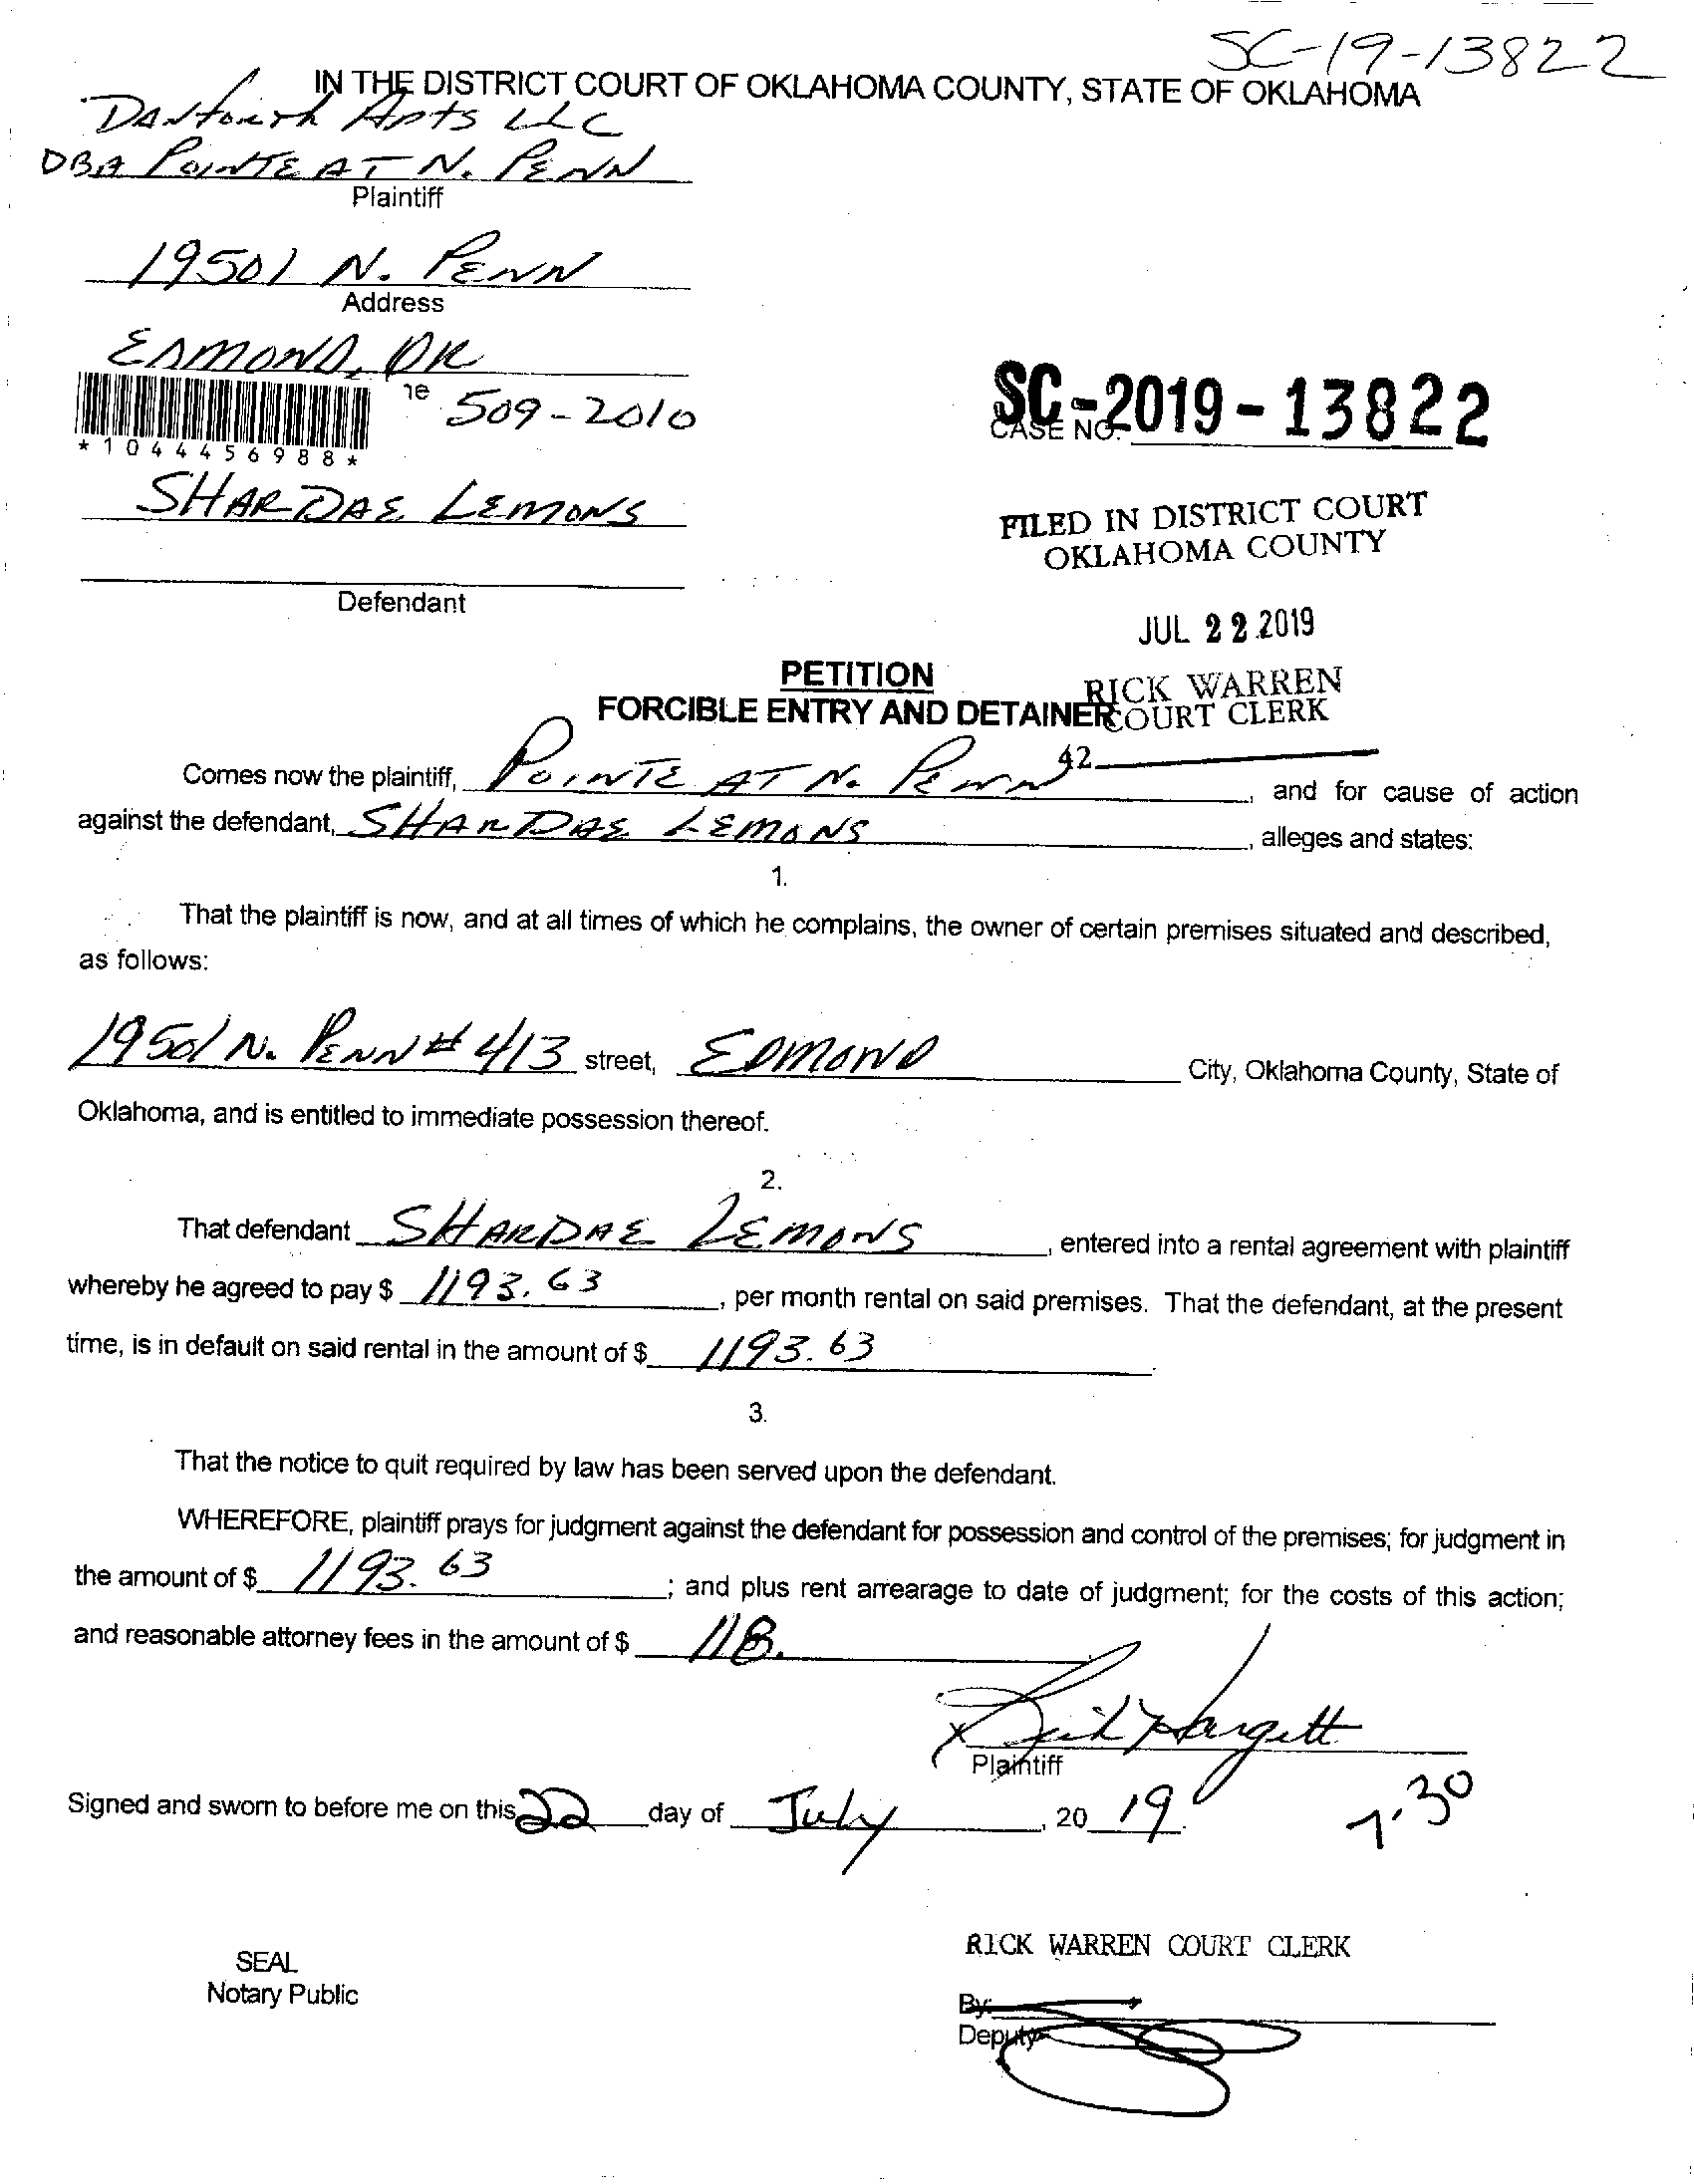 SC-19-13822
IN THE DISTRICT COURT OF OKLAHOMA COUNTY, STATE OF OKLAHOMA
Danforth Apts LLC
DBA POINTE AT N. PENN
Plaintiff
19501 N. PENN
Address
EDMOND, OK
ne 509-2010
*1044456988*
SC-2019-13822
CASE NO.
SHARDAE LEMONS
FILED IN DISTRICT COURT
OKLAHOMA COUNTY
Defendant
JUL 22 2019
PETITION
RICK WARREN
FORCIBLE ENTRY AND DETAINER
COURT CLERK
42
Comes now the plaintiff, POINTE AT N. PENN, and for cause of action
against the defendant, SHARDAE LEMONS, alleges and states:
1.
That the plaintiff is now, and at all times of which he complains, the owner of certain premises situated and described,
as follows:
19501 N. PENN # 413 street, EDMOND City, Oklahoma County, State of
Oklahoma, and is entitled to immediate possession thereof.
2.
That defendant SHARDAE LEMONS, entered into a rental agreement with plaintiff
whereby he agreed to pay $ 1193.63, per month rental on said premises. That the defendant, at the present
time, is in default on said rental in the amount of $ 1193.63.
3.
That the notice to quit required by law has been served upon the defendant.
WHEREFORE, plaintiff prays for judgment against the defendant for possession and control of the premises; for judgment in
the amount of $ 1193.63; and plus rent arrearage to date of judgment; for the costs of this action;
and reasonable attorney fees in the amount of $ 118.
X Hargett
Plaintiff
Signed and sworn to before me on this 22 day of July, 20 19.
1:30
RICK WARREN COURT CLERK
SEAL
Notary Public
By:
Deputy